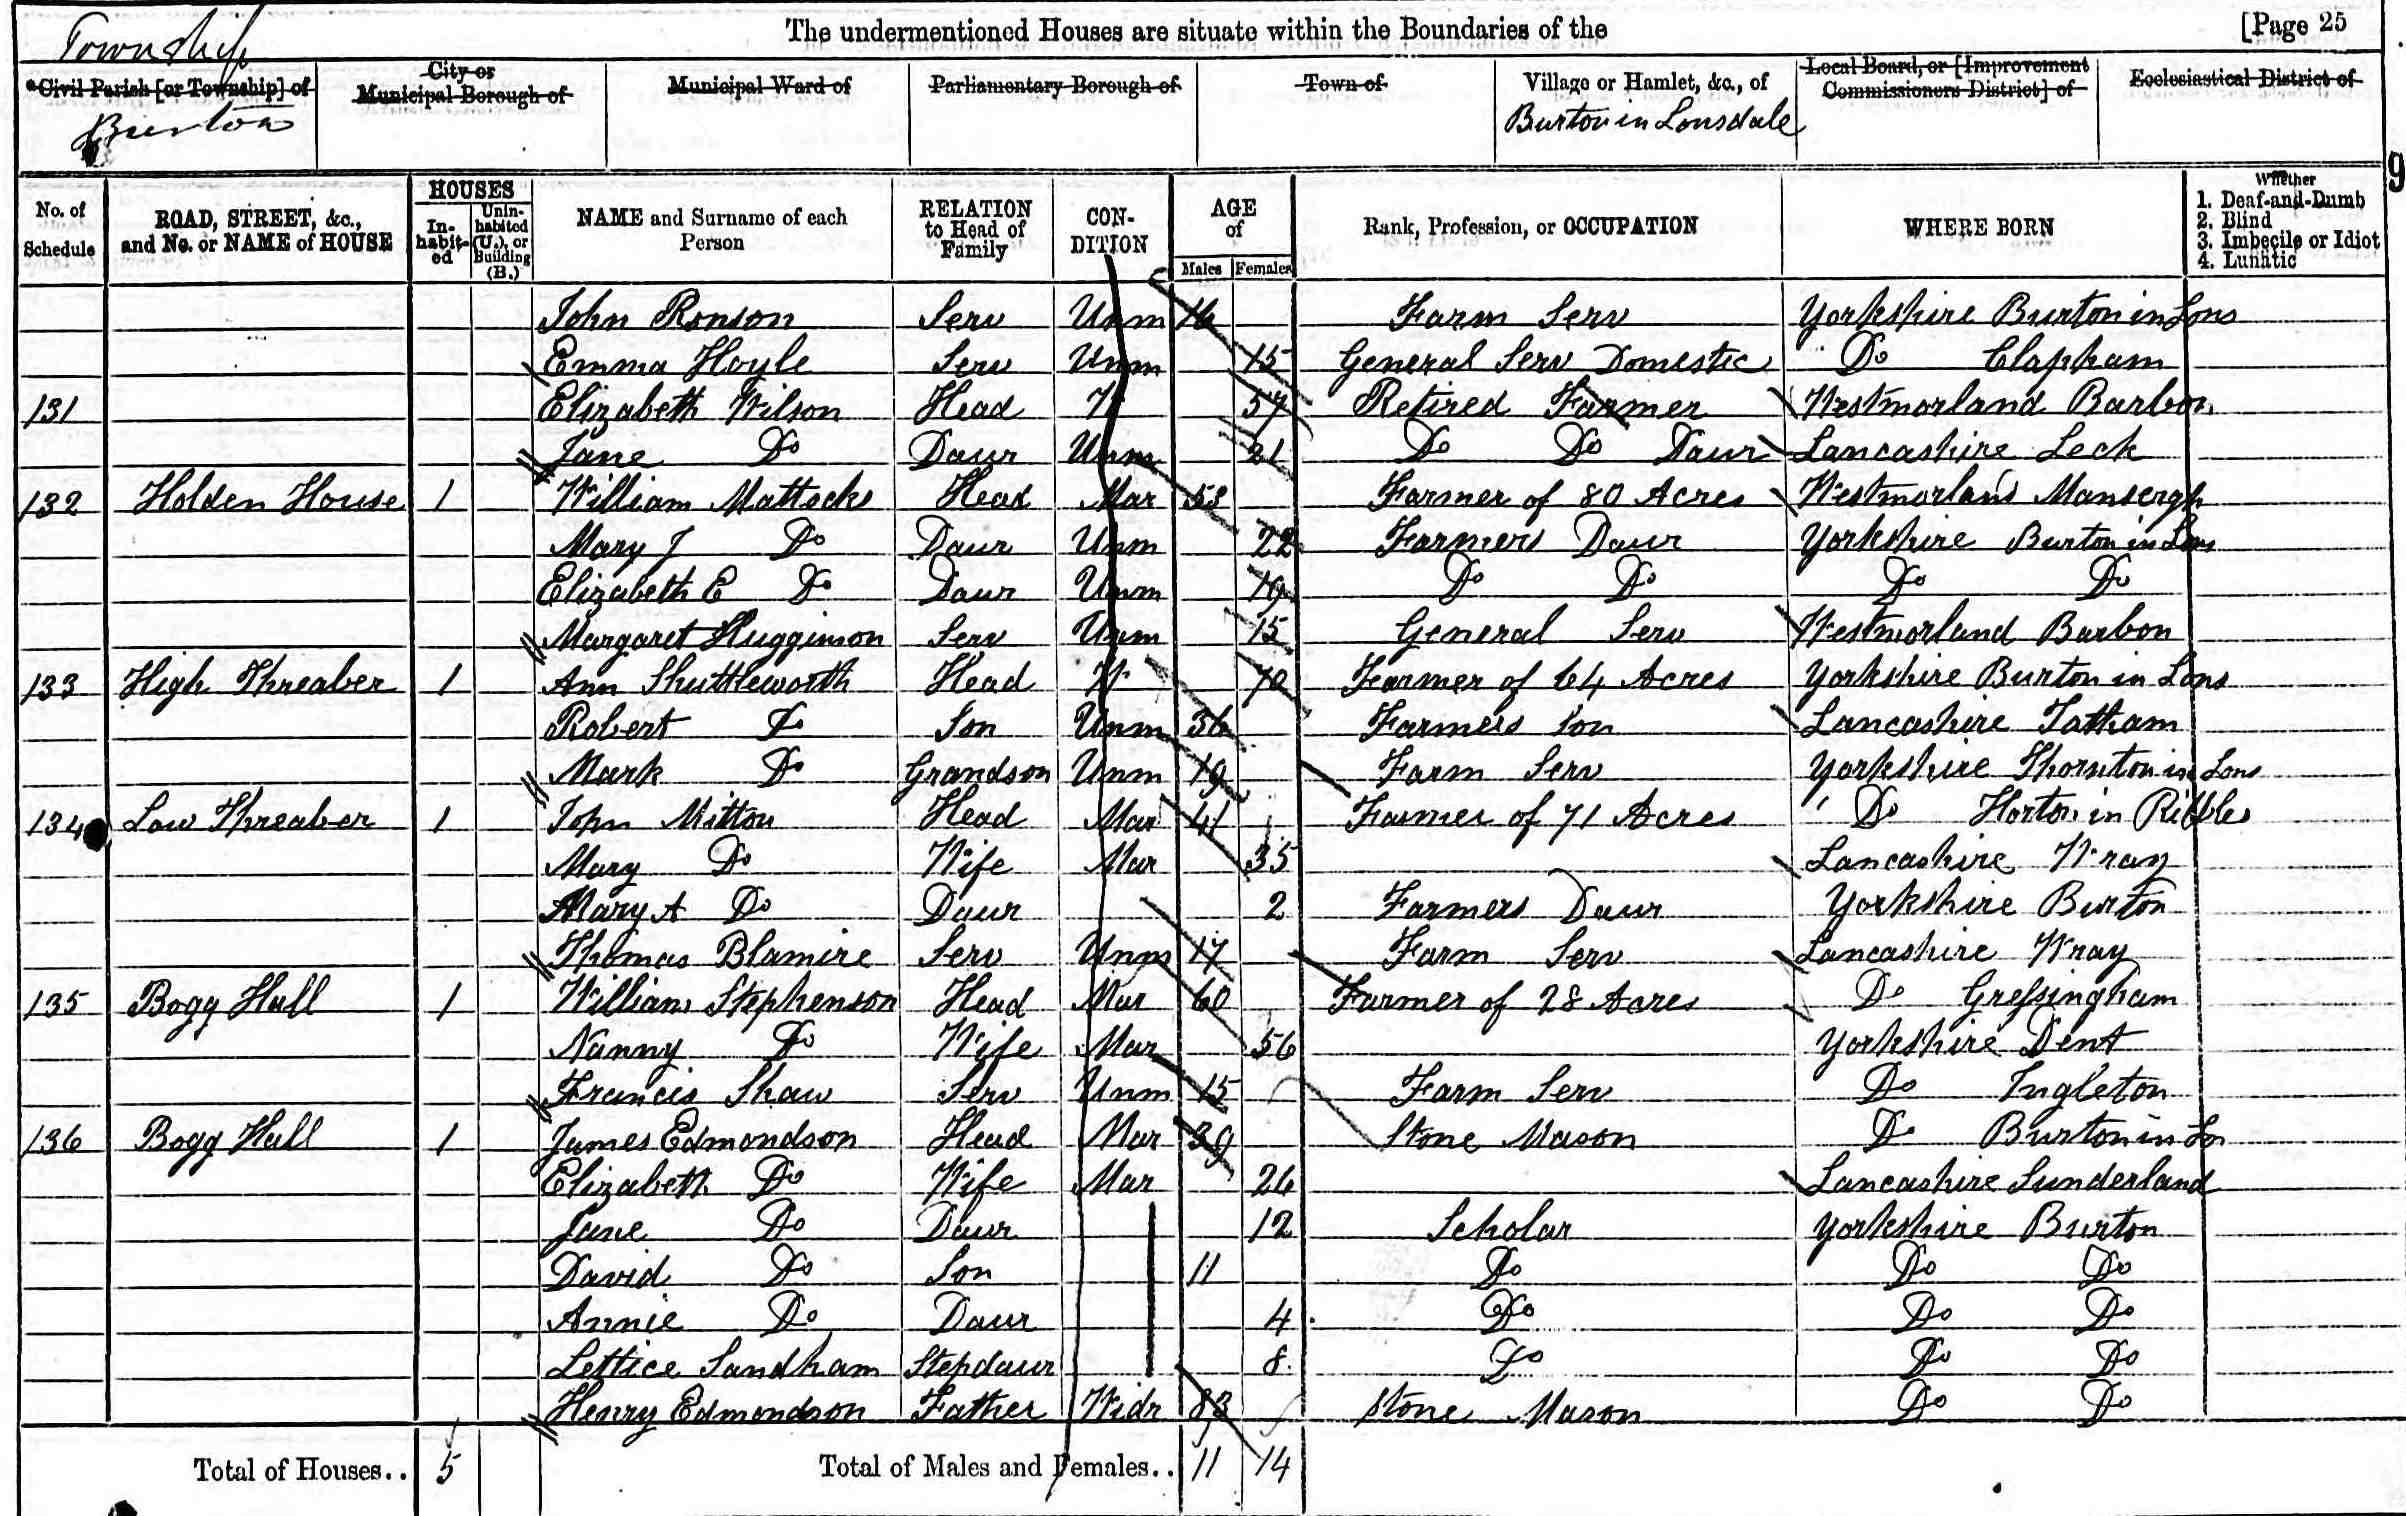 The undermentioned Houses are situate within the Boundaries of the [Page 25
Township
*Civil Parish [or Township] of
Burton
City or Municipal Borough of
Municipal Ward of
Parliamentary Borough of
Town of
Village or Hamlet, &c., of
Burton in Lonsdale
Local Board, or [Improvement Commissioners District] of
Ecclesiastical District of
9
No. of Schedule
ROAD, STREET, &c., and No. or NAME of HOUSE
HOUSES
In-habit-ed
Unin-habited (U.), or Building (B.)
NAME and Surname of each Person
RELATION to Head of Family
CON-DITION
AGE of
Males Females
Rank, Profession, or OCCUPATION
WHERE BORN
Whether
1. Deaf-and-Dumb
2. Blind
3. Imbecile or Idiot
4. Lunatic
John Ronson Serv Unm 16 Farm Serv Yorkshire Burton in Lons
Emma Hoyle Serv Unm 15 General Serv Domestic Do Clapham
131 Elizabeth Wilson Head W 57 Retired Farmer Westmorland Barbon
Jane Do Daur Unm 21 Do Do Daur Lancashire Leck
132 Holden House 1 William Mattocks Head Mar 53 Farmer of 80 Acres Westmorland Mansergh
Mary J Do Daur Unm 22 Farmers Daur Yorkshire Burton in Lons
Elizabeth E Do Daur Unm 19 Do Do Do Do
Margaret Hugginson Serv Unm 15 General Serv Westmorland Barbon
133 High Threaber 1 Ann Shuttleworth Head W 70 Farmer of 64 Acres Yorkshire Burton in Lons
Robert Do Son Unm 36 Farmers Son Lancashire Tatham
Mark Do Grandson Unm 19 Farm Serv Yorkshire Thornton in Lons
134 Low Threaber 1 John Mitton Head Mar 41 Farmer of 71 Acres Do Horton in Ribbles
Mary Do Wife Mar 35 Lancashire Wray
Mary A Do Daur 2 Farmers Daur Yorkshire Burton
Thomas Blamire Serv Unm 17 Farm Serv Lancashire Wray
135 Bogg Hall 1 William Stephenson Head Mar 60 Farmer of 28 Acres Do Gressingham
Nanny Do Wife Mar 56 Yorkshire Dent
Francis Shaw Serv Unm 15 Farm Serv Do Ingleton
136 Bogg Hall 1 James Edmondson Head Mar 39 Stone Mason Do Burton in Lon
Elizabeth Do Wife Mar 26 Lancashire Sunderland
Jane Do Daur 12 Scholar Yorkshire Burton
David Do Son 11 Do Do Do
Annie Do Daur 4 Do Do Do
Lettice Sandham Stepdaur 8 Do Do Do
Henry Edmondson Father Widr 83 Stone Mason Do Do
Total of Houses.. 5 Total of Males and Females.. 11 14